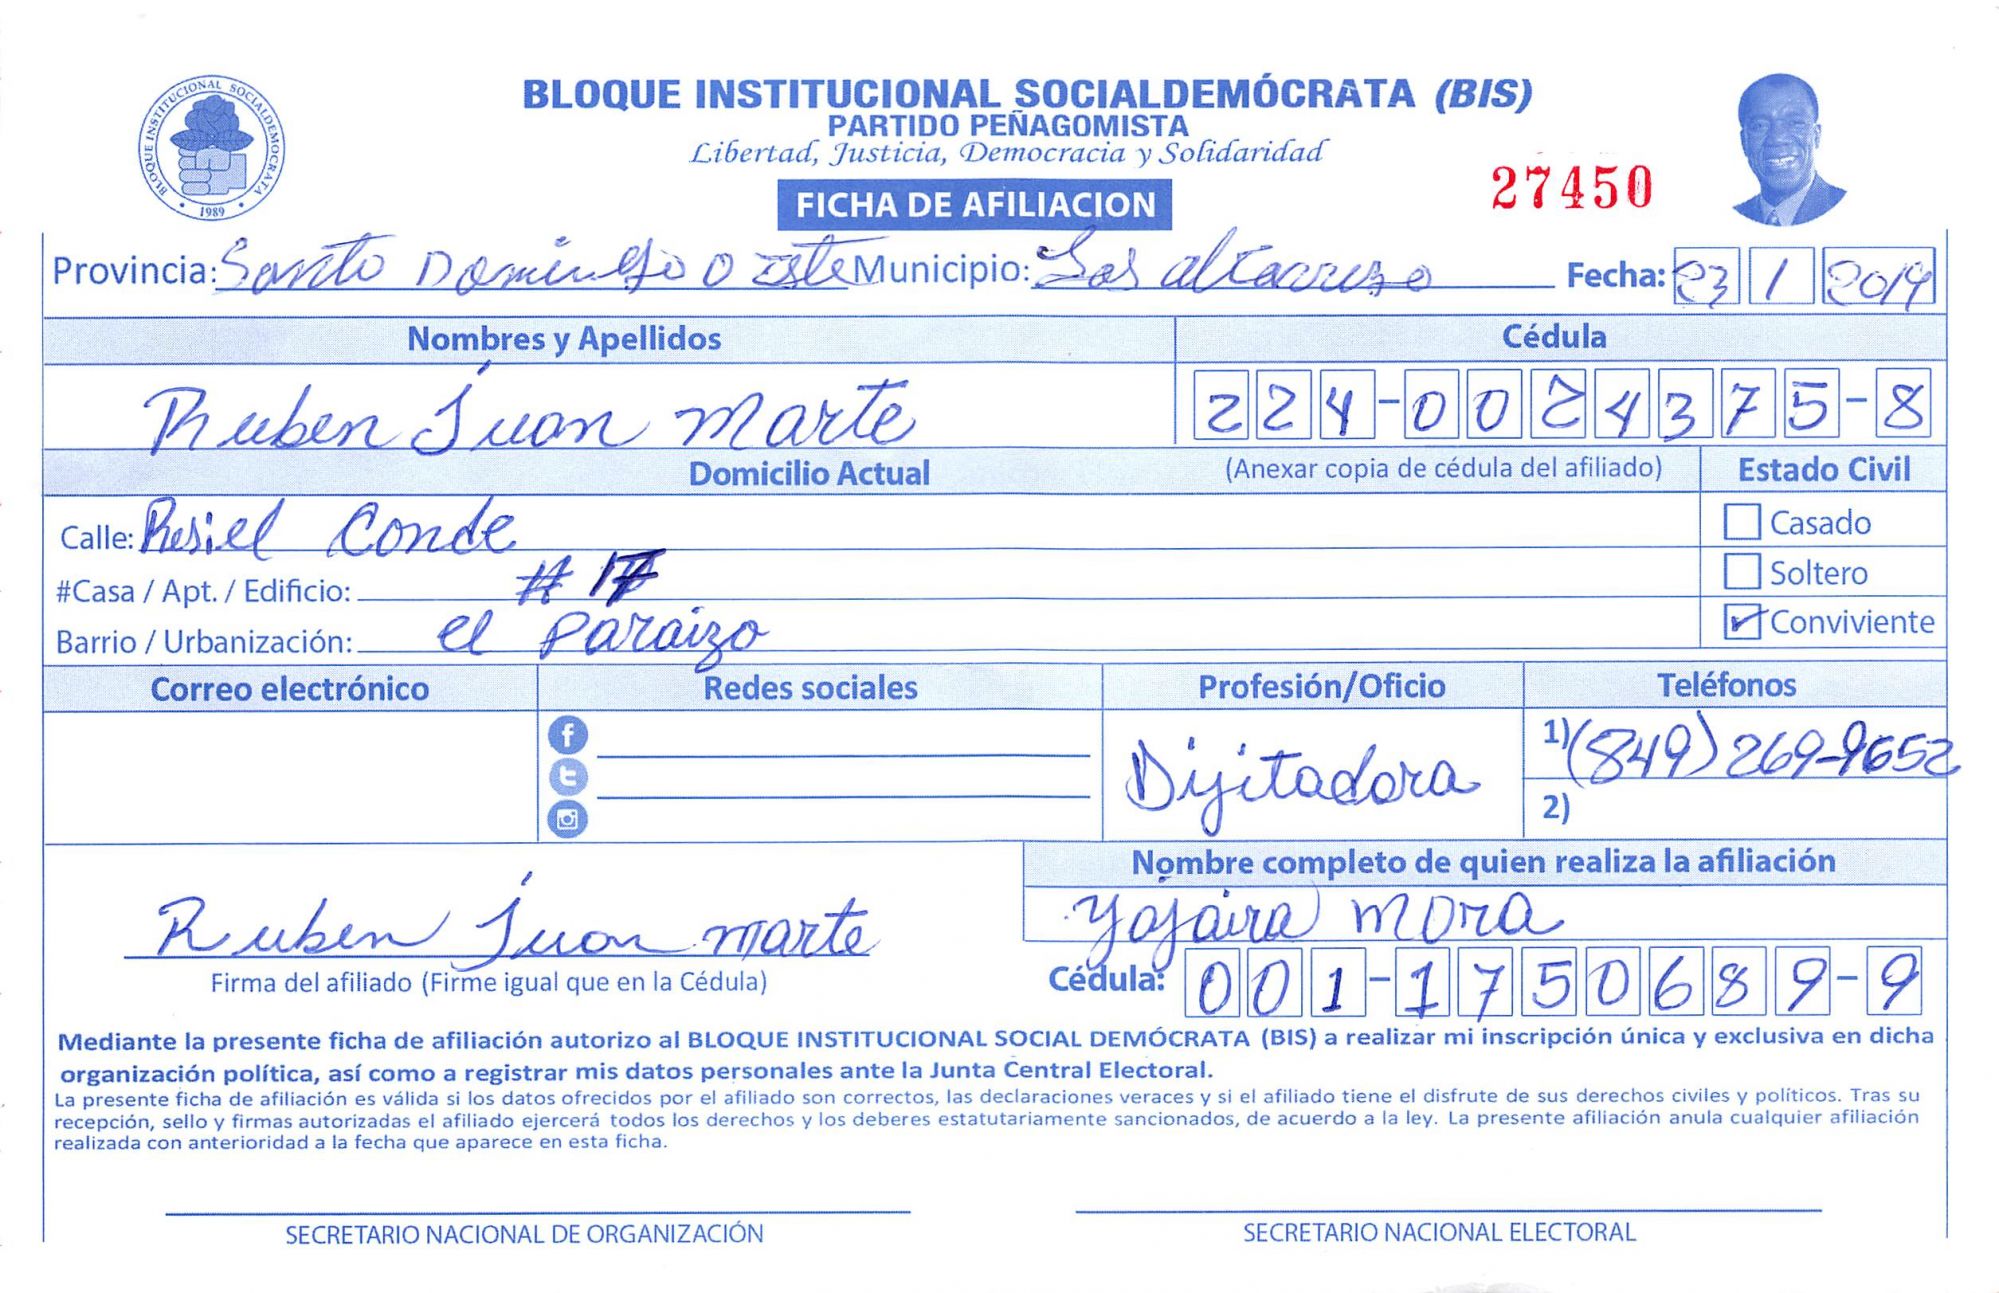 BLOQUE INSTITUCIONAL SOCIALDEMOCRATA
1989
BLOQUE INSTITUCIONAL SOCIALDEMÓCRATA (BIS)
PARTIDO PEÑAGOMISTA
Libertad, Justicia, Democracia y Solidaridad
27450
FICHA DE AFILIACION
Provincia: Santo Domingo Oeste Municipio: Los alcarrizo Fecha: 23 1 2019
Nombres y Apellidos Cédula
Ruben Juan Marte 224-0024375-8
Domicilio Actual (Anexar copia de cédula del afiliado) Estado Civil
Calle: Resiel Conde Casado
#Casa / Apt. / Edificio: # 17 Soltero
Barrio / Urbanización: el Paraizo Conviviente
Correo electrónico Redes sociales Profesión/Oficio Teléfonos
Dijitadora 1) (849) 269-9652
2)
Nombre completo de quien realiza la afiliación
Ruben Juan marte Yojaira Mora
Firma del afiliado (Firme igual que en la Cédula) Cédula: 001-1750689-9
Mediante la presente ficha de afiliación autorizo al BLOQUE INSTITUCIONAL SOCIAL DEMÓCRATA (BIS) a realizar mi inscripción única y exclusiva en dicha
organización política, así como a registrar mis datos personales ante la Junta Central Electoral.
La presente ficha de afiliación es válida si los datos ofrecidos por el afiliado son correctos, las declaraciones veraces y si el afiliado tiene el disfrute de sus derechos civiles y políticos. Tras su
recepción, sello y firmas autorizadas el afiliado ejercerá todos los derechos y los deberes estatutariamente sancionados, de acuerdo a la ley. La presente afiliación anula cualquier afiliación
realizada con anterioridad a la fecha que aparece en esta ficha.
SECRETARIO NACIONAL DE ORGANIZACIÓN SECRETARIO NACIONAL ELECTORAL